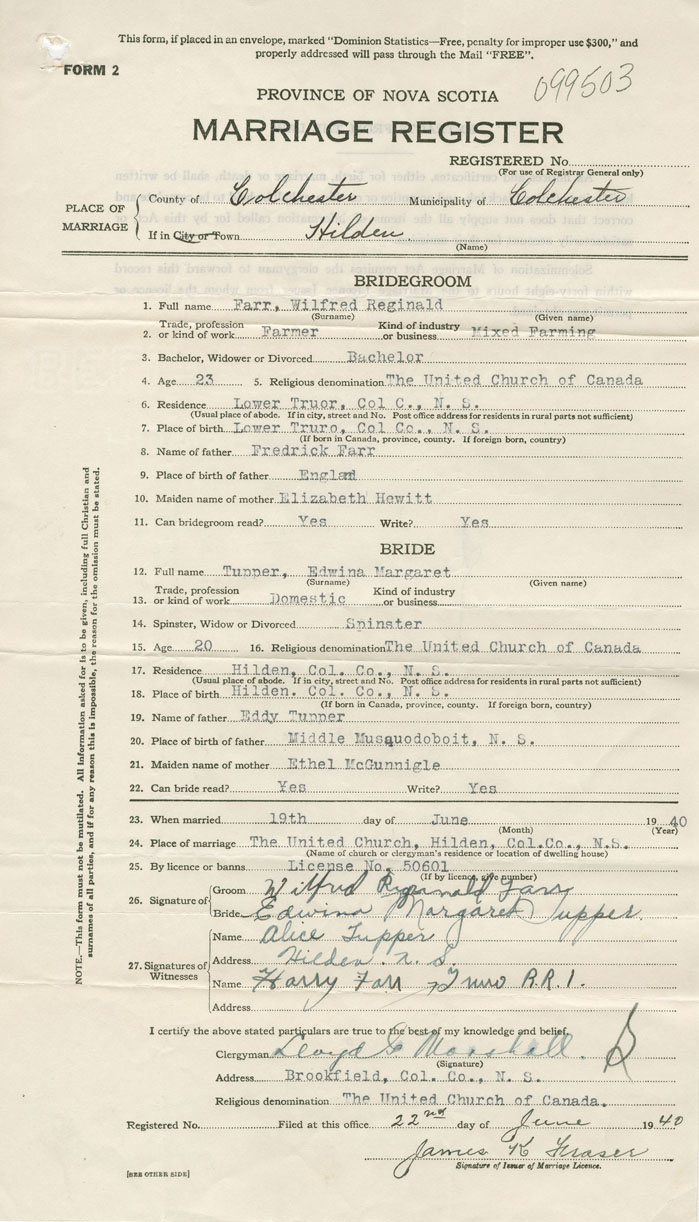 This form, if placed in an envelope, marked "Dominion Statistics—Free, penalty for improper use $300," and
properly addressed will pass through the Mail "FREE".
FORM 2
099503
PROVINCE OF NOVA SCOTIA
MARRIAGE REGISTER
REGISTERED No.
(For use of Registrar General only)
PLACE OF MARRIAGE
County of Colchester Municipality of Colchester
If in City or Town Hilden
(Name)
BRIDEGROOM
1. Full name Farr, Wilfred Reginald
(Surname) (Given name)
2. Trade, profession or kind of work Farmer Kind of industry or business Mixed Farming
3. Bachelor, Widower or Divorced Bachelor
4. Age 23 5. Religious denomination The United Church of Canada
6. Residence Lower Truor, Col C., N. S.
(Usual place of abode. If in city, street and No. Post office address for residents in rural parts not sufficient)
7. Place of birth Lower Truro, Col Co., N. S.
(If born in Canada, province, county. If foreign born, country)
8. Name of father Fredrick Farr
9. Place of birth of father England
10. Maiden name of mother Elizabeth Hewitt
11. Can bridegroom read? Yes Write? Yes
BRIDE
12. Full name Tupper, Edwina Margaret
(Surname) (Given name)
13. Trade, profession or kind of work Domestic Kind of industry or business
14. Spinster, Widow or Divorced Spinster
15. Age 20 16. Religious denomination The United Church of Canada
17. Residence Hilden, Col. Co., N. S.
(Usual place of abode. If in city, street and No. Post office address for residents in rural parts not sufficient)
18. Place of birth Hilden. Col. Co., N. S.
(If born in Canada, province, county. If foreign born, country)
19. Name of father Eddy Tupper
20. Place of birth of father Middle Musquodoboit, N. S.
21. Maiden name of mother Ethel McGunnigle
22. Can bride read? Yes Write? Yes
23. When married 19th day of June 1940
(Month) (Year)
24. Place of marriage The United Church, Hilden, Col.Co., N.S.
(Name of church or clergyman's residence or location of dwelling house)
25. By licence or banns License No. 50601
(If by licence, give number)
26. Signature of
Groom Wilfred Reginald Farr
Bride Edwina Margaret Tupper
27. Signatures of Witnesses
Name Alice Tupper
Address Hilden N. S.
Name Harry Farr Truro R.R. 1.
Address
I certify the above stated particulars are true to the best of my knowledge and belief.
Clergyman Lloyd G Marshall.
(Signature)
Address Brookfield, Col. Co., N. S.
Religious denomination The United Church of Canada.
Registered No. Filed at this office 22nd day of June 1940
James K Fraser
Signature of Issuer of Marriage Licence.
[SEE OTHER SIDE]
NOTE.—This form must not be mutilated. All information asked for is to be given, including full Christian and
surnames of all parties, and if for any reason this is impossible, the reason for the omission must be stated.